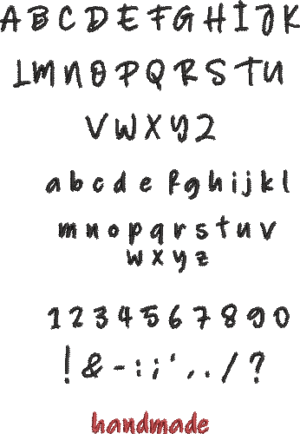 A B C D E F G H I J K
L M N O P Q R S T U
V W X Y Z
a b c d e f g h i j k l
m n o p q r s t u v
w x y z
1 2 3 4 5 6 7 8 9 0
! & - : ; ' , . / ?
handmade